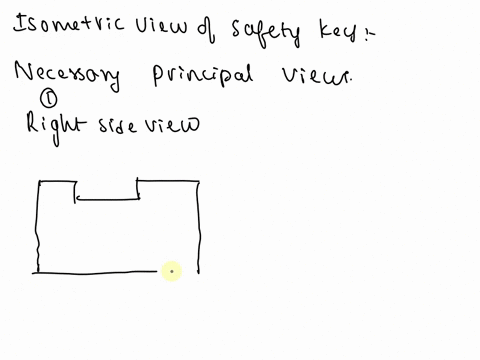 Isometric view of safety key:-
Necessary principal views.
①
Right side view